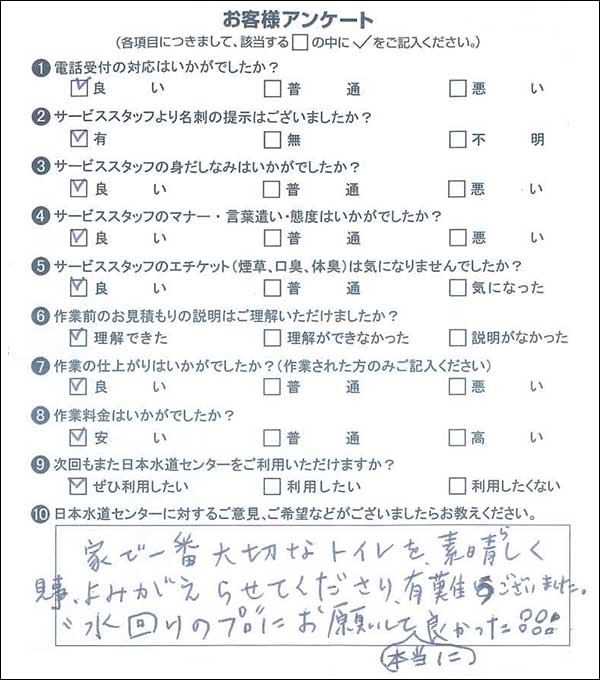 お客様アンケート
(各項目につきまして、該当する□の中に✓をご記入ください。)
❶電話受付の対応はいかがでしたか?
☑良い □普通 □悪い
❷サービススタッフより名刺の提示はございましたか?
☑有 □無 □不明
❸サービススタッフの身だしなみはいかがでしたか?
☑良い □普通 □悪い
❹サービススタッフのマナー・言葉遣い・態度はいかがでしたか?
☑良い □普通 □悪い
❺サービススタッフのエチケット(煙草、口臭、体臭)は気になりませんでしたか?
☑良い □普通 □気になった
❻作業前のお見積もりの説明はご理解いただけましたか?
☑理解できた □理解ができなかった □説明がなかった
❼作業の仕上がりはいかがでしたか?(作業された方のみご記入ください)
☑良い □普通 □悪い
❽作業料金はいかがでしたか?
☑安い □普通 □高い
❾次回もまた日本水道センターをご利用いただけますか?
☑ぜひ利用したい □利用したい □利用したくない
❿日本水道センターに対するご意見、ご希望などがございましたらお教えください。
家で一番大切なトイレを、素晴らしく
見事、よみがえらせてくださり、有難うございました。
水回りのプロにお願いして良かった
本当に